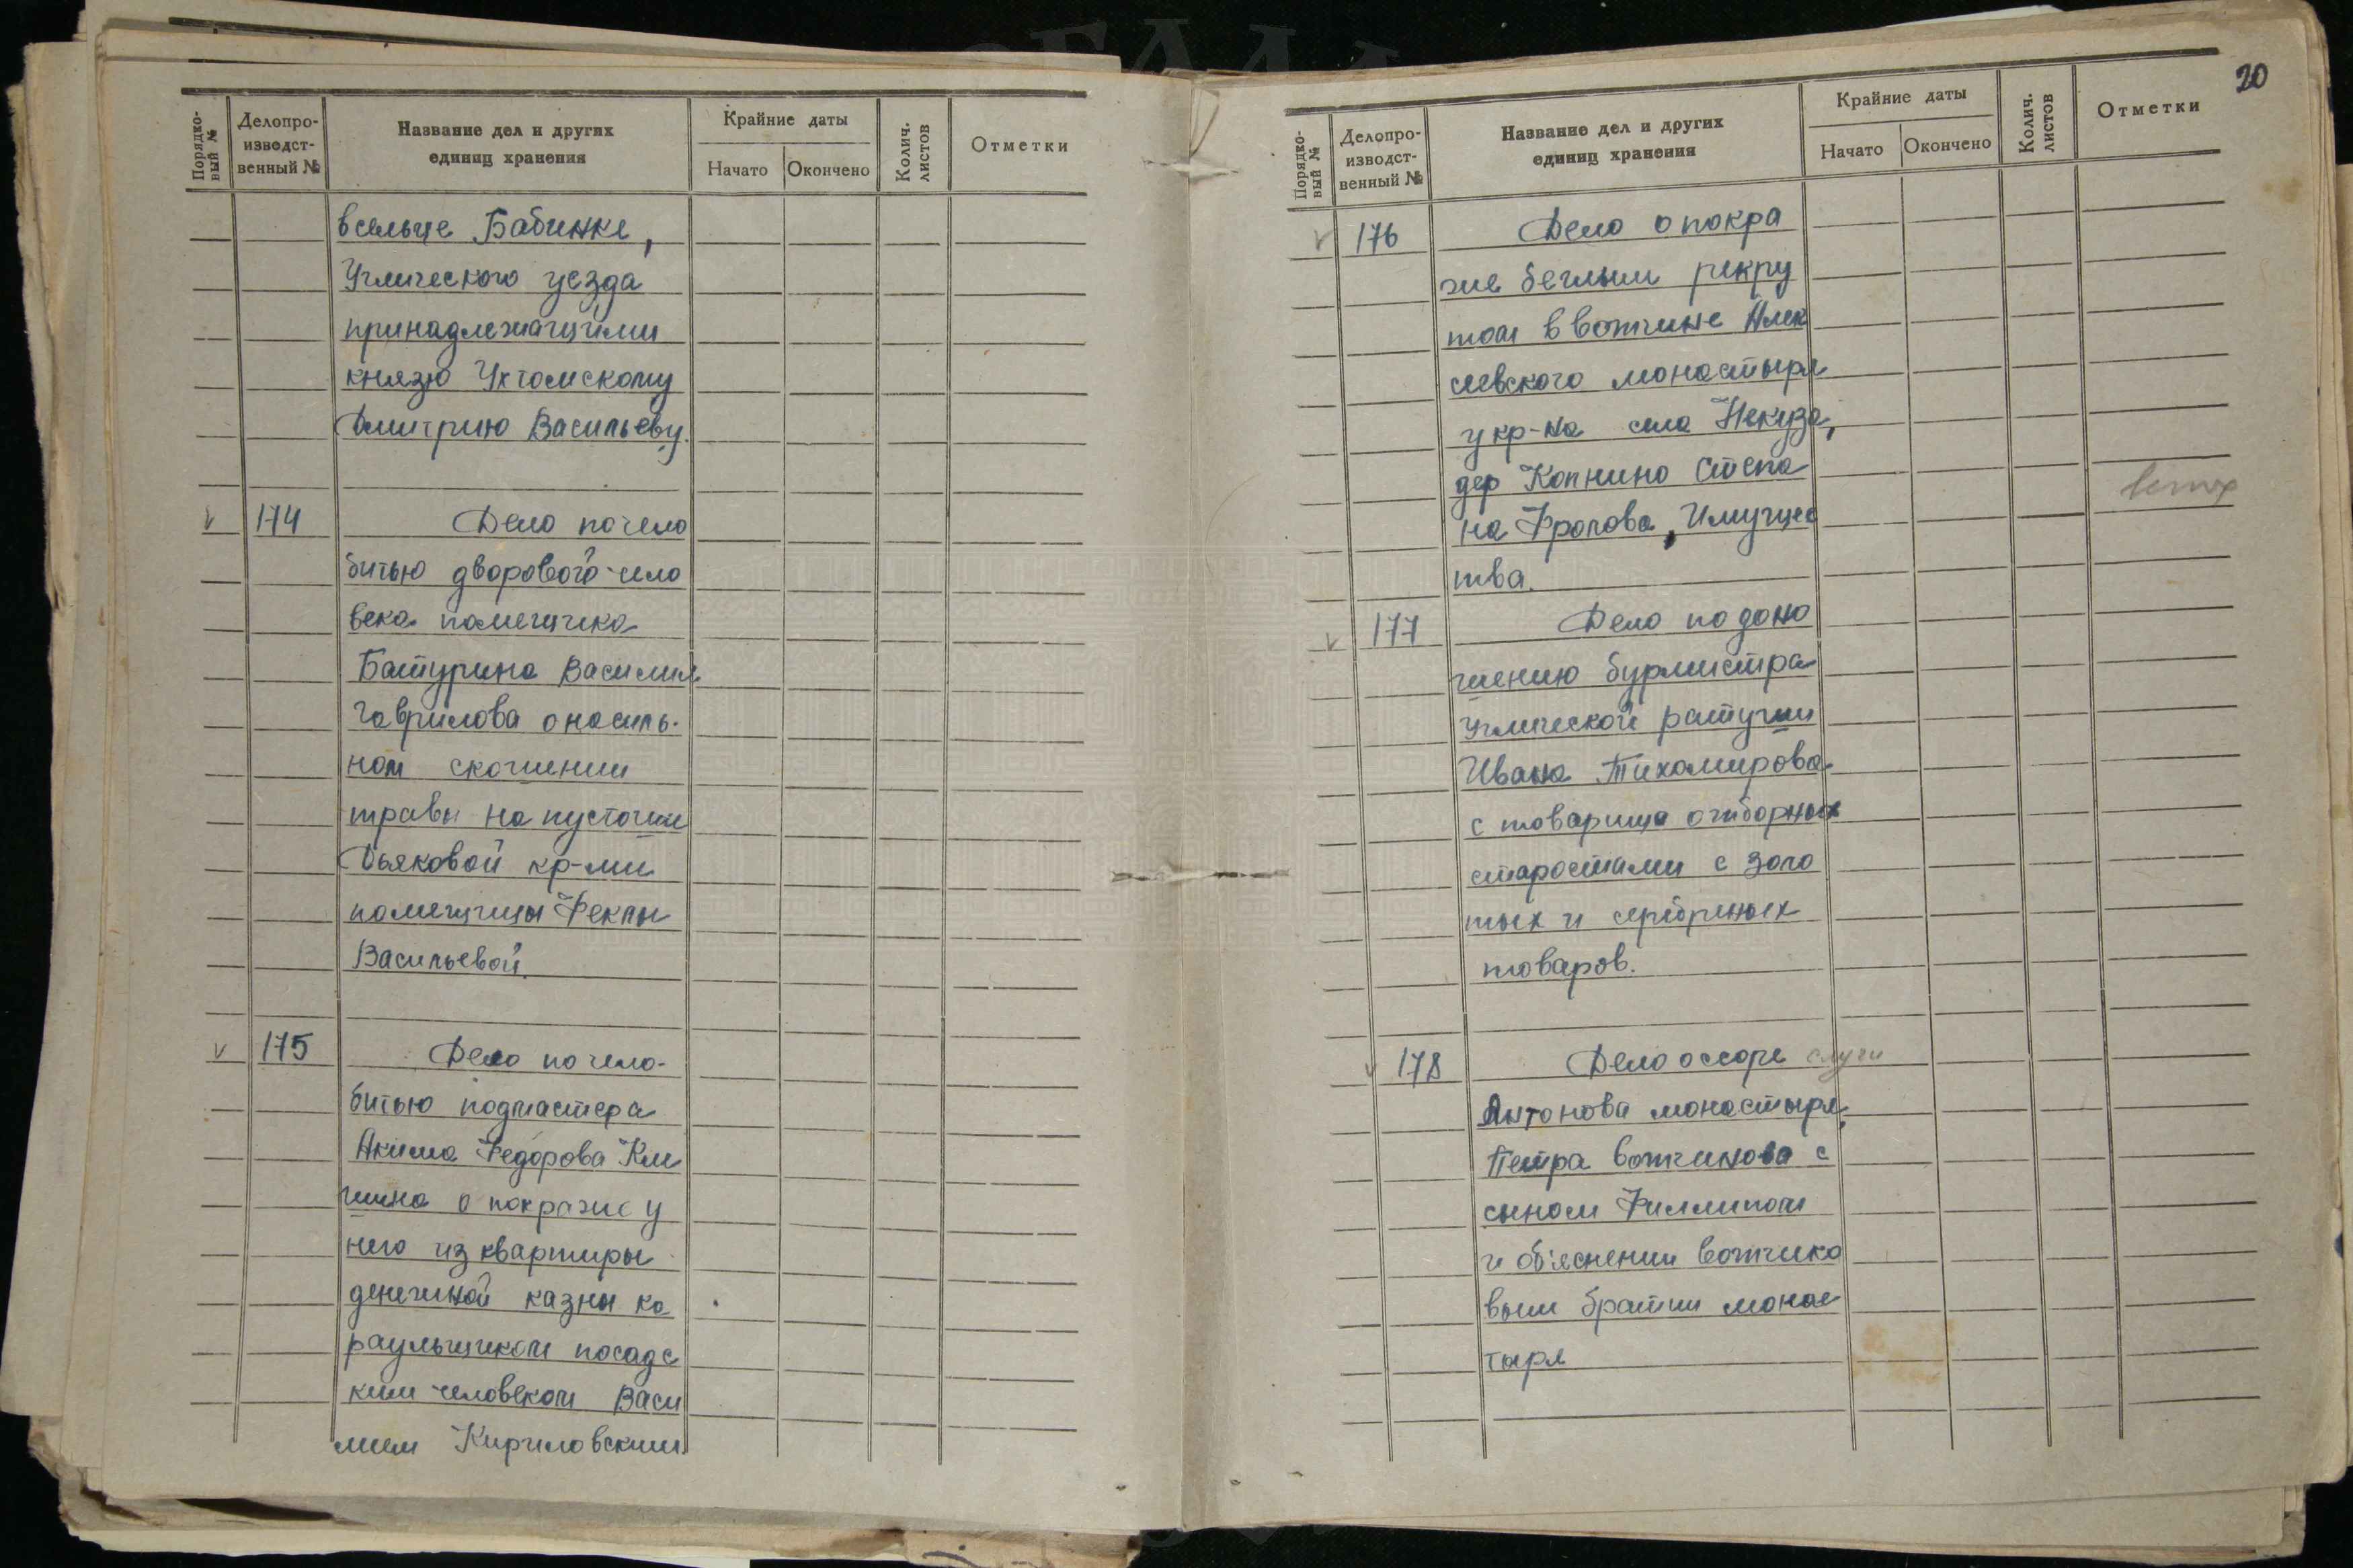 Порядко-
вый №
Делопро-
изводст-
венный №
Название дел и других
единиц хранения
Крайние даты
Начато
Окончено
Колич.
листов
Отметки
в сельце Бабинке,
Угличского уезда
принадлежащими
князю Ухтомскому
Дмитрию Васильеву.
174
Дело по чело
битью дворового чело
века помещика
Батурина Василия
Гаврилова о насиль-
ном скошении
травы на пустоши
Дьяковой кр-ми
помещицы Феклы
Васильевой.
175
Дело по чело-
битью подмастера
Акима Федорова Кли
шина о покраже у
него из квартиры
денежной казны ка
раульщиком посадс
ким человеком Васи
лием Кириловским.
20
Порядко-
вый №
Делопро-
изводст-
венный №
Название дел и других
единиц хранения
Крайние даты
Начато
Окончено
Колич.
листов
Отметки
176
Дело о покра
же беглым рекру
том в вотчине Алек
сеевского монастыря
у кр-на села Некуза,
дер Копнино Степа
на Фролова, Имущес
тва.
177
Дело по доно
шению бурмистра
Угличской ратуши
Ивана Тихомирова
с товарища о сборных
старостами с золо
тых и серебреных
товаров.
178
Дело о ссоре слуги
Антонова монастыря,
Петра Вотчинова с
сыном Филлипом
и об'яснении Вотчино
вым братии монас
тыря